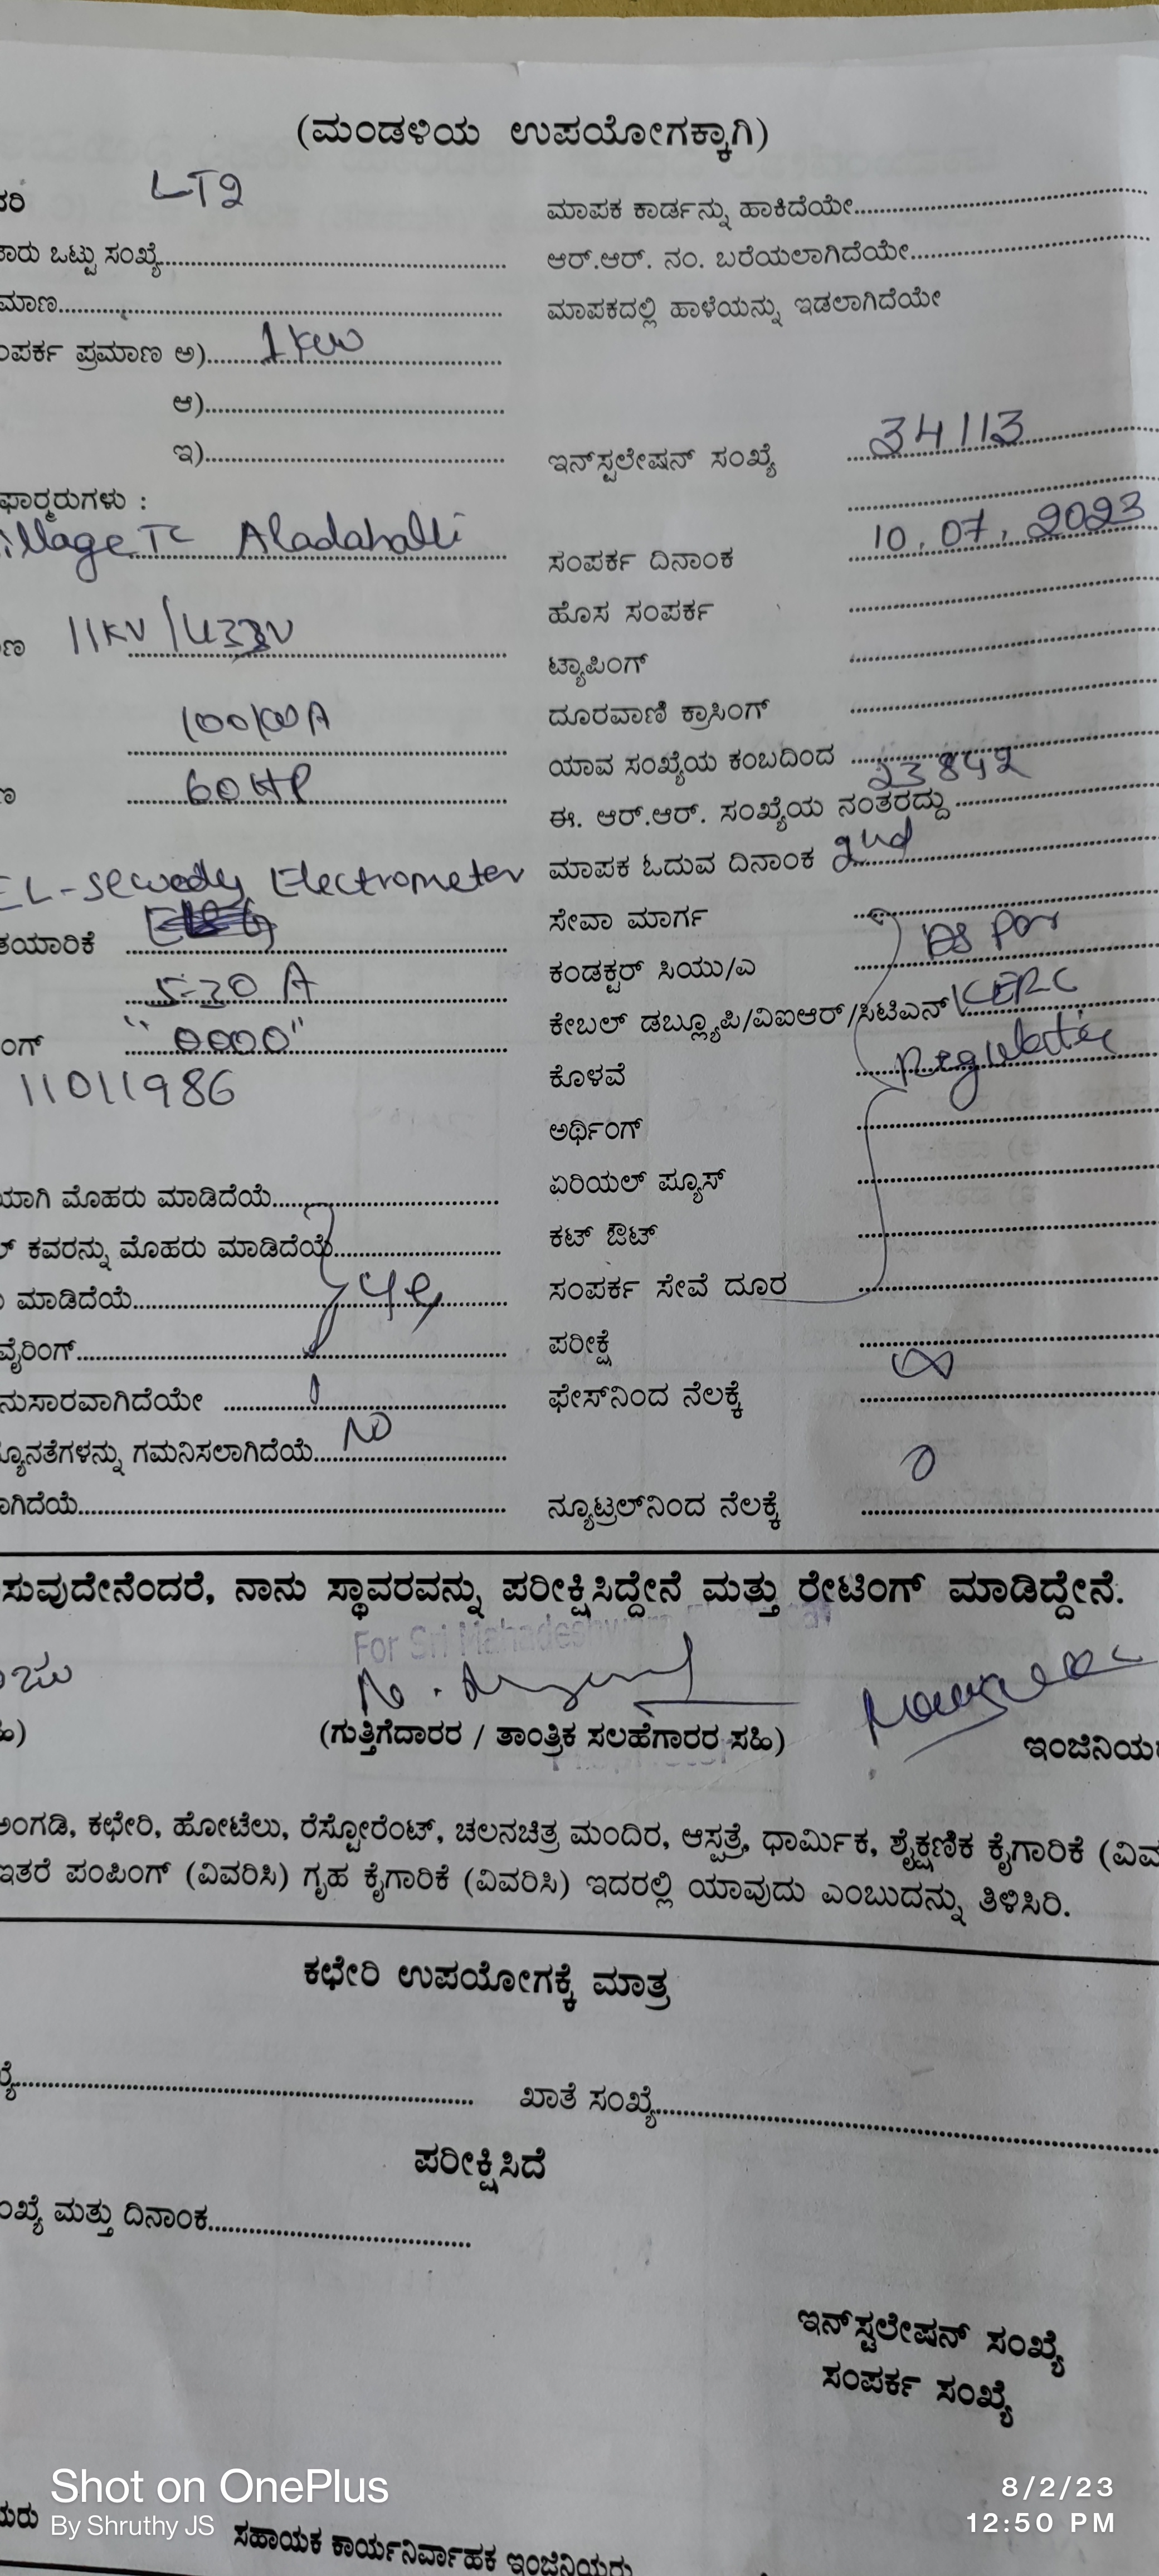 (ಮಂಡಳಿಯ ಉಪಯೋಗಕ್ಕಾಗಿ)
LT2
ಮಾಪಕ ಕಾರ್ಡನ್ನು ಹಾಕಿದೆಯೇ
ಒಟ್ಟು ಸಂಖ್ಯೆ
ಆರ್.ಆರ್. ನಂ. ಬರೆಯಲಾಗಿದೆಯೇ
ಮಾಪಕದಲ್ಲಿ ಹಾಳೆಯನ್ನು ಇಡಲಾಗಿದೆಯೇ
ಪ್ರಮಾಣ ಅ) 1 KW
ಆ)
ಇ)
ಇನ್‌ಸ್ಟಲೇಷನ್ ಸಂಖ್ಯೆ 34113
TC Aladahalli
ಸಂಪರ್ಕ ದಿನಾಂಕ 10.07.2023
ಹೊಸ ಸಂಪರ್ಕ
11KV/433V
ಟ್ಯಾಪಿಂಗ್
ದೂರವಾಣಿ ಕ್ರಾಸಿಂಗ್
ಯಾವ ಸಂಖ್ಯೆಯ ಕಂಬದಿಂದ
60 HP
23842
ಈ. ಆರ್.ಆರ್. ಸಂಖ್ಯೆಯ ನಂತರದ್ದು
ಮಾಪಕ ಓದುವ ದಿನಾಂಕ 2nd
EL-sewedy Electrometer
ಸೇವಾ ಮಾರ್ಗ
ತಯಾರಿಕೆ
ಕಂಡಕ್ಟರ್ ಸಿಯು/ಎ As Per
5-30 A
ಕೇಬಲ್ ಡಬ್ಲ್ಯೂಪಿ/ವಿಐಆರ್/ಸಿಟಿಎನ್ KERC
"0000"
ಕೊಳವೆ
11011986
ಅರ್ಥಿಂಗ್
ಮೊಹರು ಮಾಡಿದೆಯೆ
ಏರಿಯಲ್ ಪ್ಯೂಸ್
ಕವರನ್ನು ಮೊಹರು ಮಾಡಿದೆಯೆ
ಕಟ್ ಔಟ್
ಮಾಡಿದೆಯೆ
ಸಂಪರ್ಕ ಸೇವೆ ದೂರ
ವೈರಿಂಗ್
ಪರೀಕ್ಷೆ
ಫೇಸ್‌ನಿಂದ ನೆಲಕ್ಕೆ ∞
ಗಮನಿಸಲಾಗಿದೆಯೆ NO
ನ್ಯೂಟ್ರಲ್‌ನಿಂದ ನೆಲಕ್ಕೆ 0
ನಾನು ಸ್ಥಾವರವನ್ನು ಪರೀಕ್ಷಿಸಿದ್ದೇನೆ ಮತ್ತು ರೇಟಿಂಗ್ ಮಾಡಿದ್ದೇನೆ.
For Sri
(ಗುತ್ತಿಗೆದಾರರ / ತಾಂತ್ರಿಕ ಸಲಹೆಗಾರರ ಸಹಿ)
ಅಂಗಡಿ, ಕಛೇರಿ, ಹೋಟೆಲು, ರೆಸ್ಟೋರೆಂಟ್, ಚಲನಚಿತ್ರ ಮಂದಿರ, ಆಸ್ಪತ್ರೆ, ಧಾರ್ಮಿಕ, ಶೈಕ್ಷಣಿಕ ಕೈಗಾರಿಕೆ
ಇತರೆ ಪಂಪಿಂಗ್ (ವಿವರಿಸಿ) ಗೃಹ ಕೈಗಾರಿಕೆ (ವಿವರಿಸಿ) ಇದರಲ್ಲಿ ಯಾವುದು ಎಂಬುದನ್ನು ತಿಳಿಸಿರಿ.
ಕಛೇರಿ ಉಪಯೋಗಕ್ಕೆ ಮಾತ್ರ
ಖಾತೆ ಸಂಖ್ಯೆ
ಪರೀಕ್ಷಿಸಿದೆ
ಮತ್ತು ದಿನಾಂಕ
ಇನ್‌ಸ್ಟಲೇಷನ್ ಸಂಖ್ಯೆ
ಸಂಪರ್ಕ ಸಂಖ್ಯೆ
Shot on OnePlus
By Shruthy JS
8/2/23
12:50 PM
ಸಹಾಯಕ ಕಾರ್ಯನಿರ್ವಾಹಕ ಇಂಜಿನಿಯರು